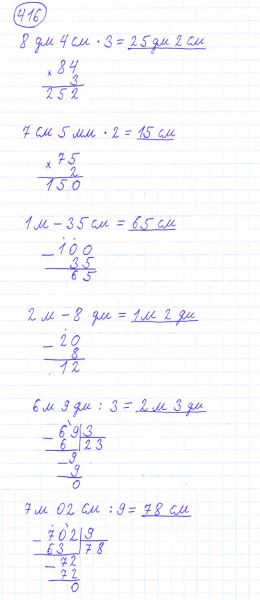 416
8 дм 4 см · 3 = 25 дм 2 см
× 84
3
252
7 см 5 мм · 2 = 15 см
× 75
2
150
1 м - 35 см = 65 см
- 100
35
65
2 м - 8 дм = 1 м 2 дм
- 20
8
12
6 м 9 дм : 3 = 2 м 3 дм
- 69 | 3
6 | 23
- 9
9
0
7 м 02 см : 9 = 78 см
- 702 | 9
63 | 78
- 72
72
0